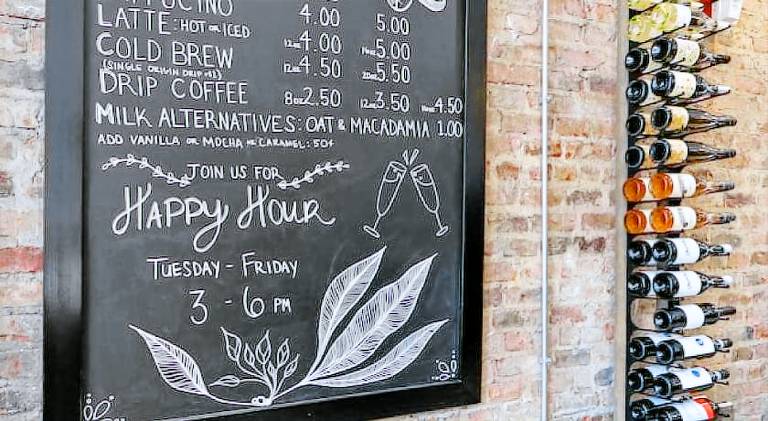 LATTE: HOT OR ICED 4.00 5.00
COLD BREW 12oz 4.00 16oz 5.00
(SINGLE ORIGIN DRIP +$1) 12oz 4.50 20oz 5.50
DRIP COFFEE 8oz 2.50 12oz 3.50 16oz 4.50
MILK ALTERNATIVES: OAT & MACADAMIA 1.00
ADD VANILLA OR MOCHA OR CARAMEL: 50¢
JOIN US FOR
HAPPY HOUR
TUESDAY - FRIDAY
3 - 6 PM